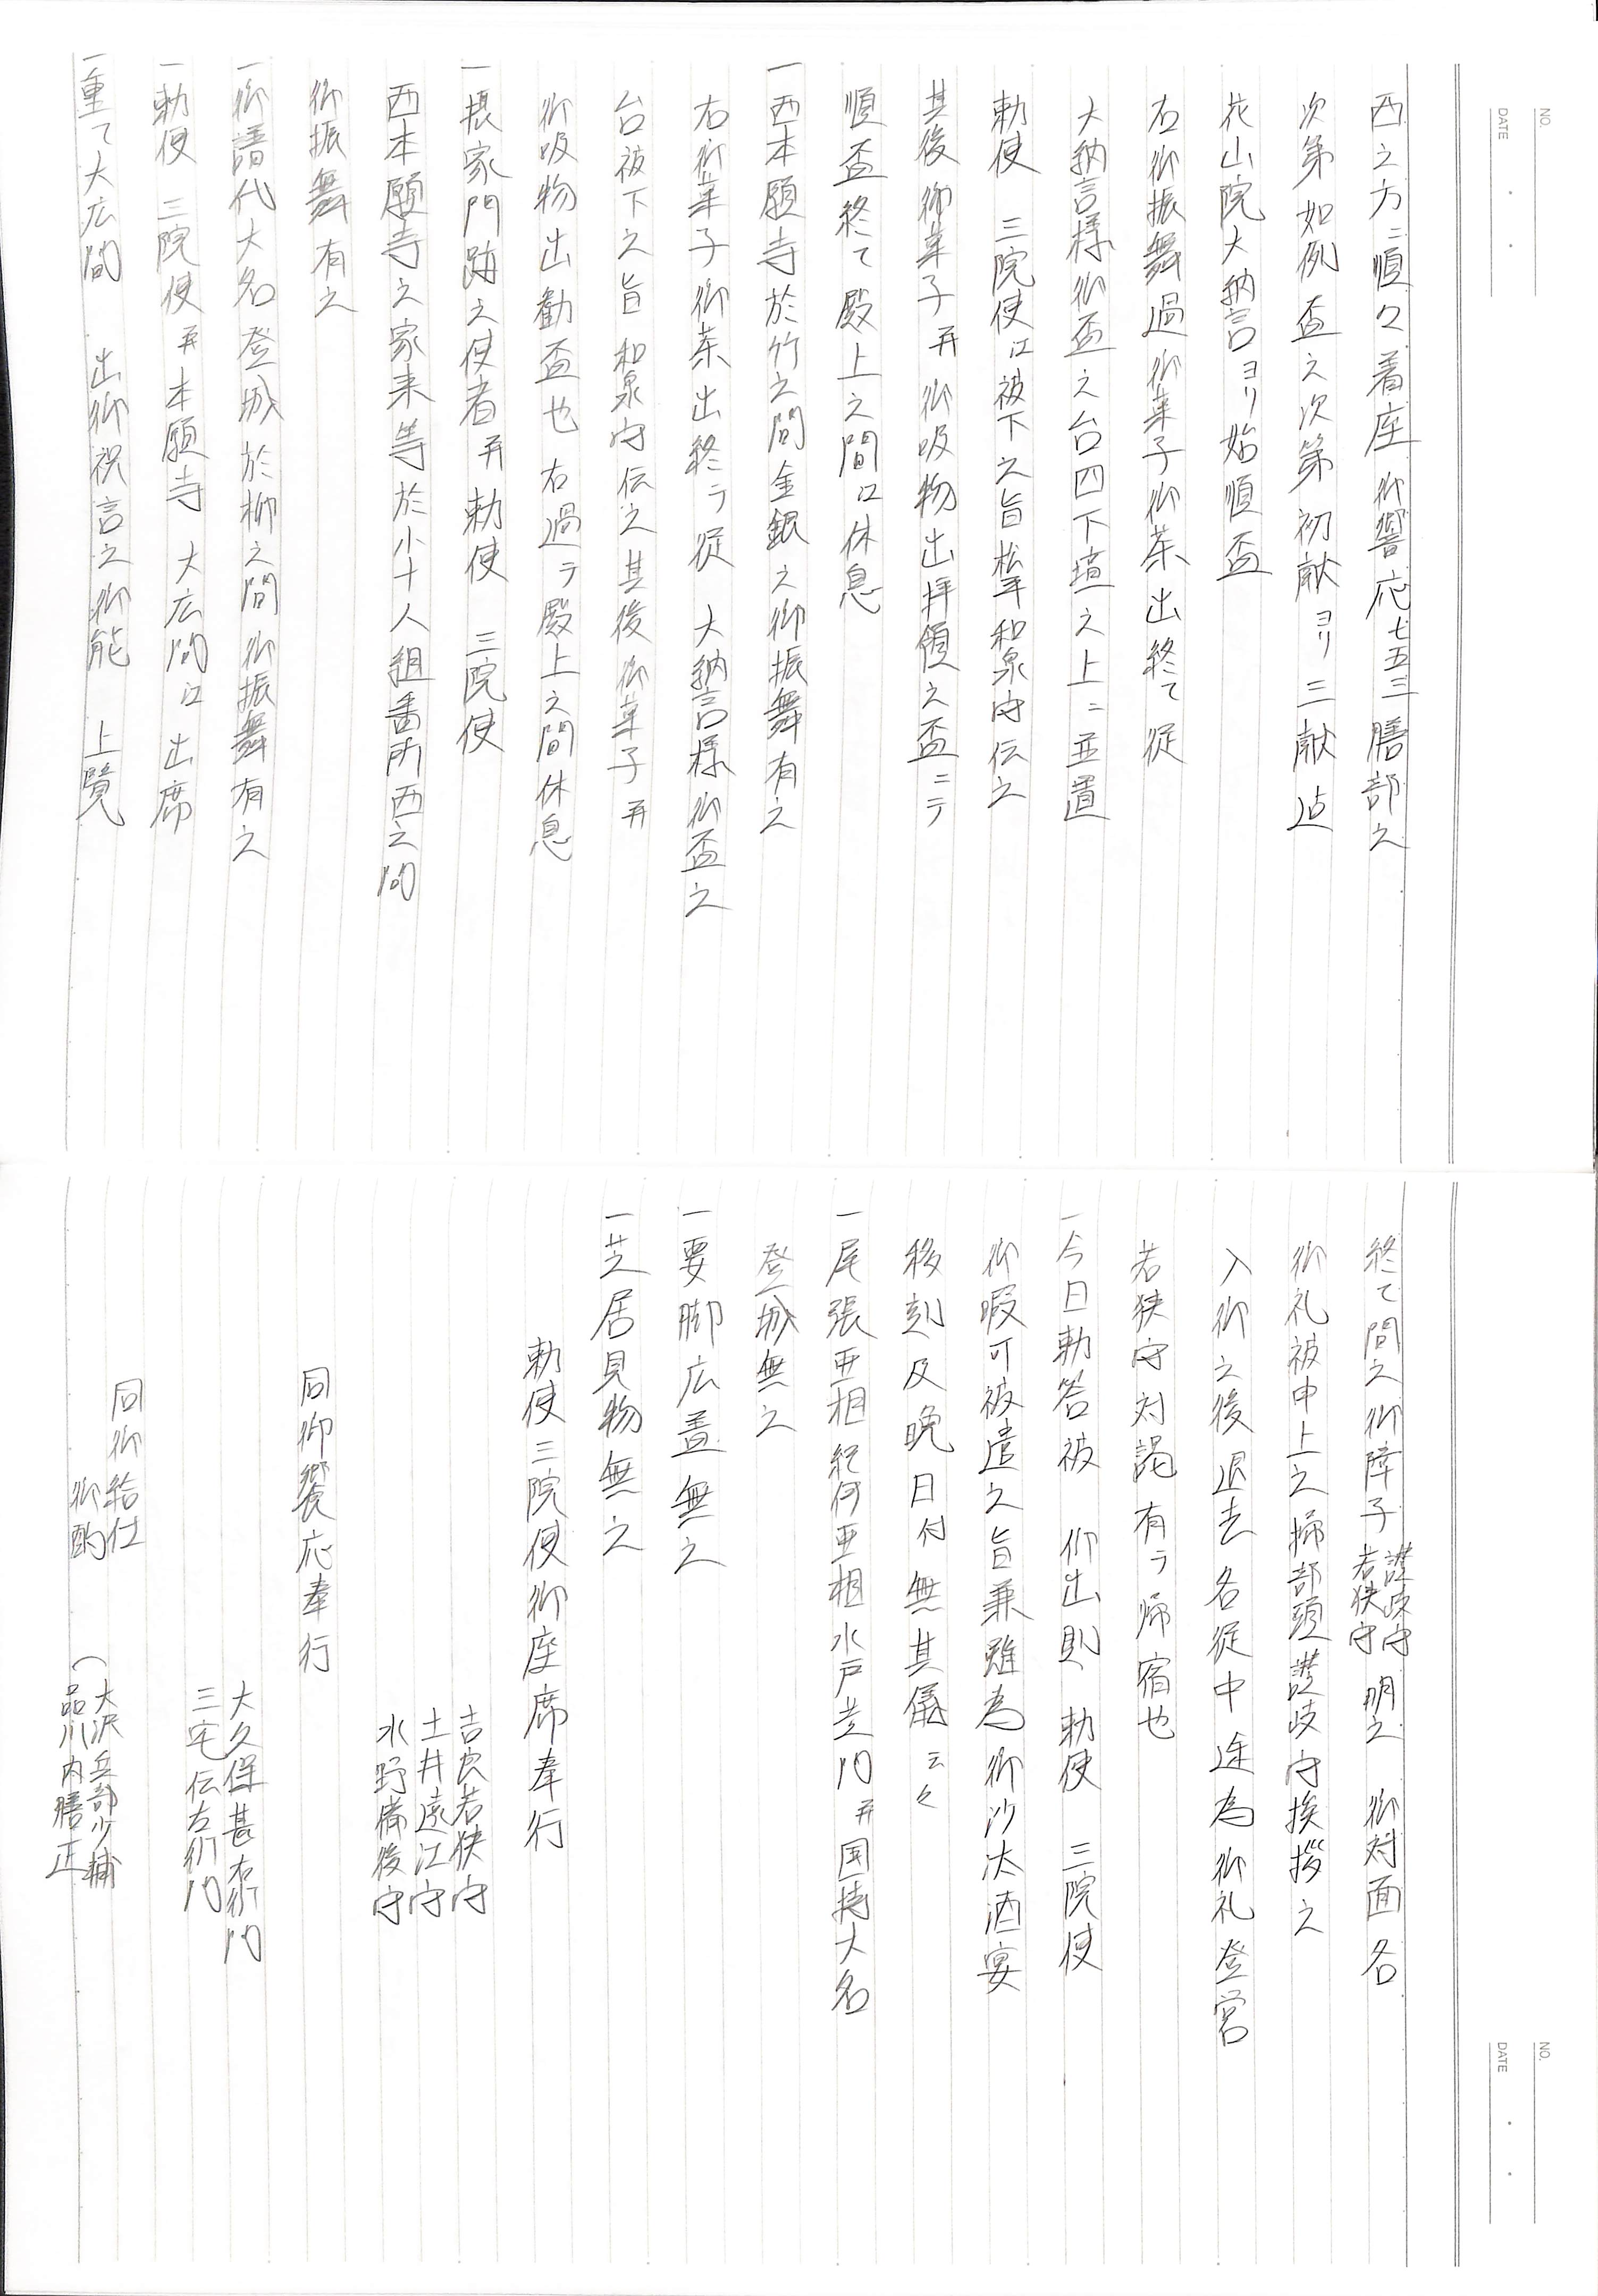 NO.
DATE
西之方ニ順々着座御饗応七五三膳部之
次第如例盃之次第初献ヨリ三献迠
花山院大納言ヨリ始順盃
右御振舞過御菓子御茶出終て従
大納言様御盃之台四下壇之上ニ並置
勅使　三院使江被下之旨松平和泉守伝之
其後御菓子并御吸物出拝領之盃ニテ
順盃終て殿上之間江休息
一西本願寺於竹之間金銀之御振舞有之
右御菓子御茶出終テ従　大納言様御盃之
台被下之旨和泉守伝之其後御菓子并
御吸物出勧盃也右過テ殿上之間休息
一摂家門跡之使者并勅使　三院使
西本願寺之家来等於小十人組番所西之間
御振舞有之
一御譜代大名登城於柳之間御振舞有之
一勅使　三院使并本願寺　大広間江出席
一重て大広間　出御祝言之御能　上覧
NO.
DATE
終て間之御障子讃岐守若狭守明之　御対面各
御礼被申上之掃部頭讃岐守挨拶之
入御之後退去各従中途為御礼登営
若狭守対謁有テ帰宿也
一今日勅答被　仰出則　勅使　三院使
御暇可被遣之旨兼雖為御沙汰酒宴
移刻及晩日付無其儀云々
一尾張亜相紀伊亜相水戸黄門并国持大名
登城無之
一要脚広蓋無之
一芝居見物無之
勅使三院使御座席奉行
吉良若狭守
土井遠江守
水野備後守
同御饗応奉行
大久保甚右衛門
三宅伝左衛門
同御給仕
御酌
（大沢兵部少輔
品川内膳正